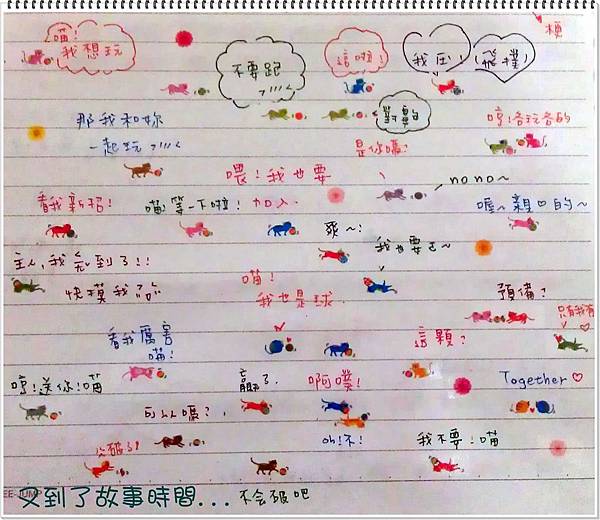 喵!
我想玩
不要跑
這啦!
我压!
飛撲
梗
那我和妳
一起玩
對!
是你嗎?
哼!各玩各的
喂!我也要
加入.
nono~
看我新招!
喵!等一下啦!
喔~親♡的~
爽~!
我也要コ~
主人,我 到了!!
快摸我
喵!
我也是球.
預備?
只有我有
看我厲害
喵!
這顆?
哼!送你!喵
贏了.
啊噗!
Together♡
可以嗎?
oh!不!
我不要!喵
公破了!
EE-JUMP
又到了故事時間...
不会破吧